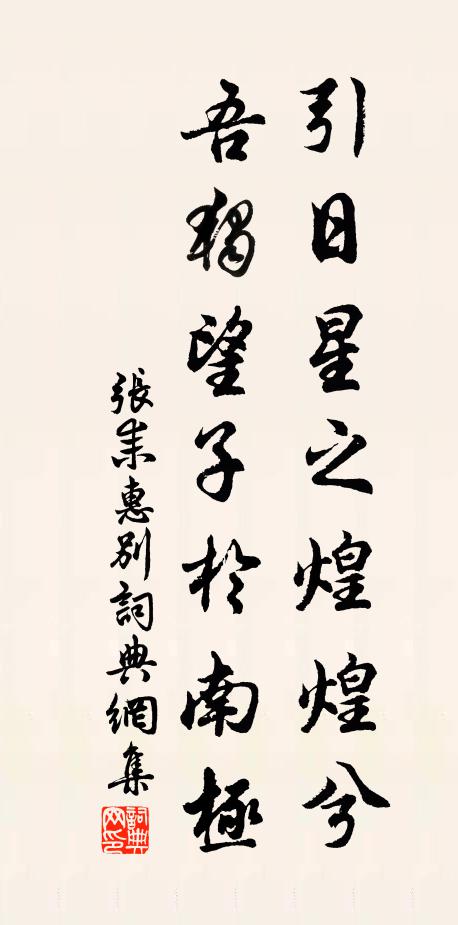 引日星之煌煌兮
吾獨望子於南極
張耒惠別詞典網集
詞典網印